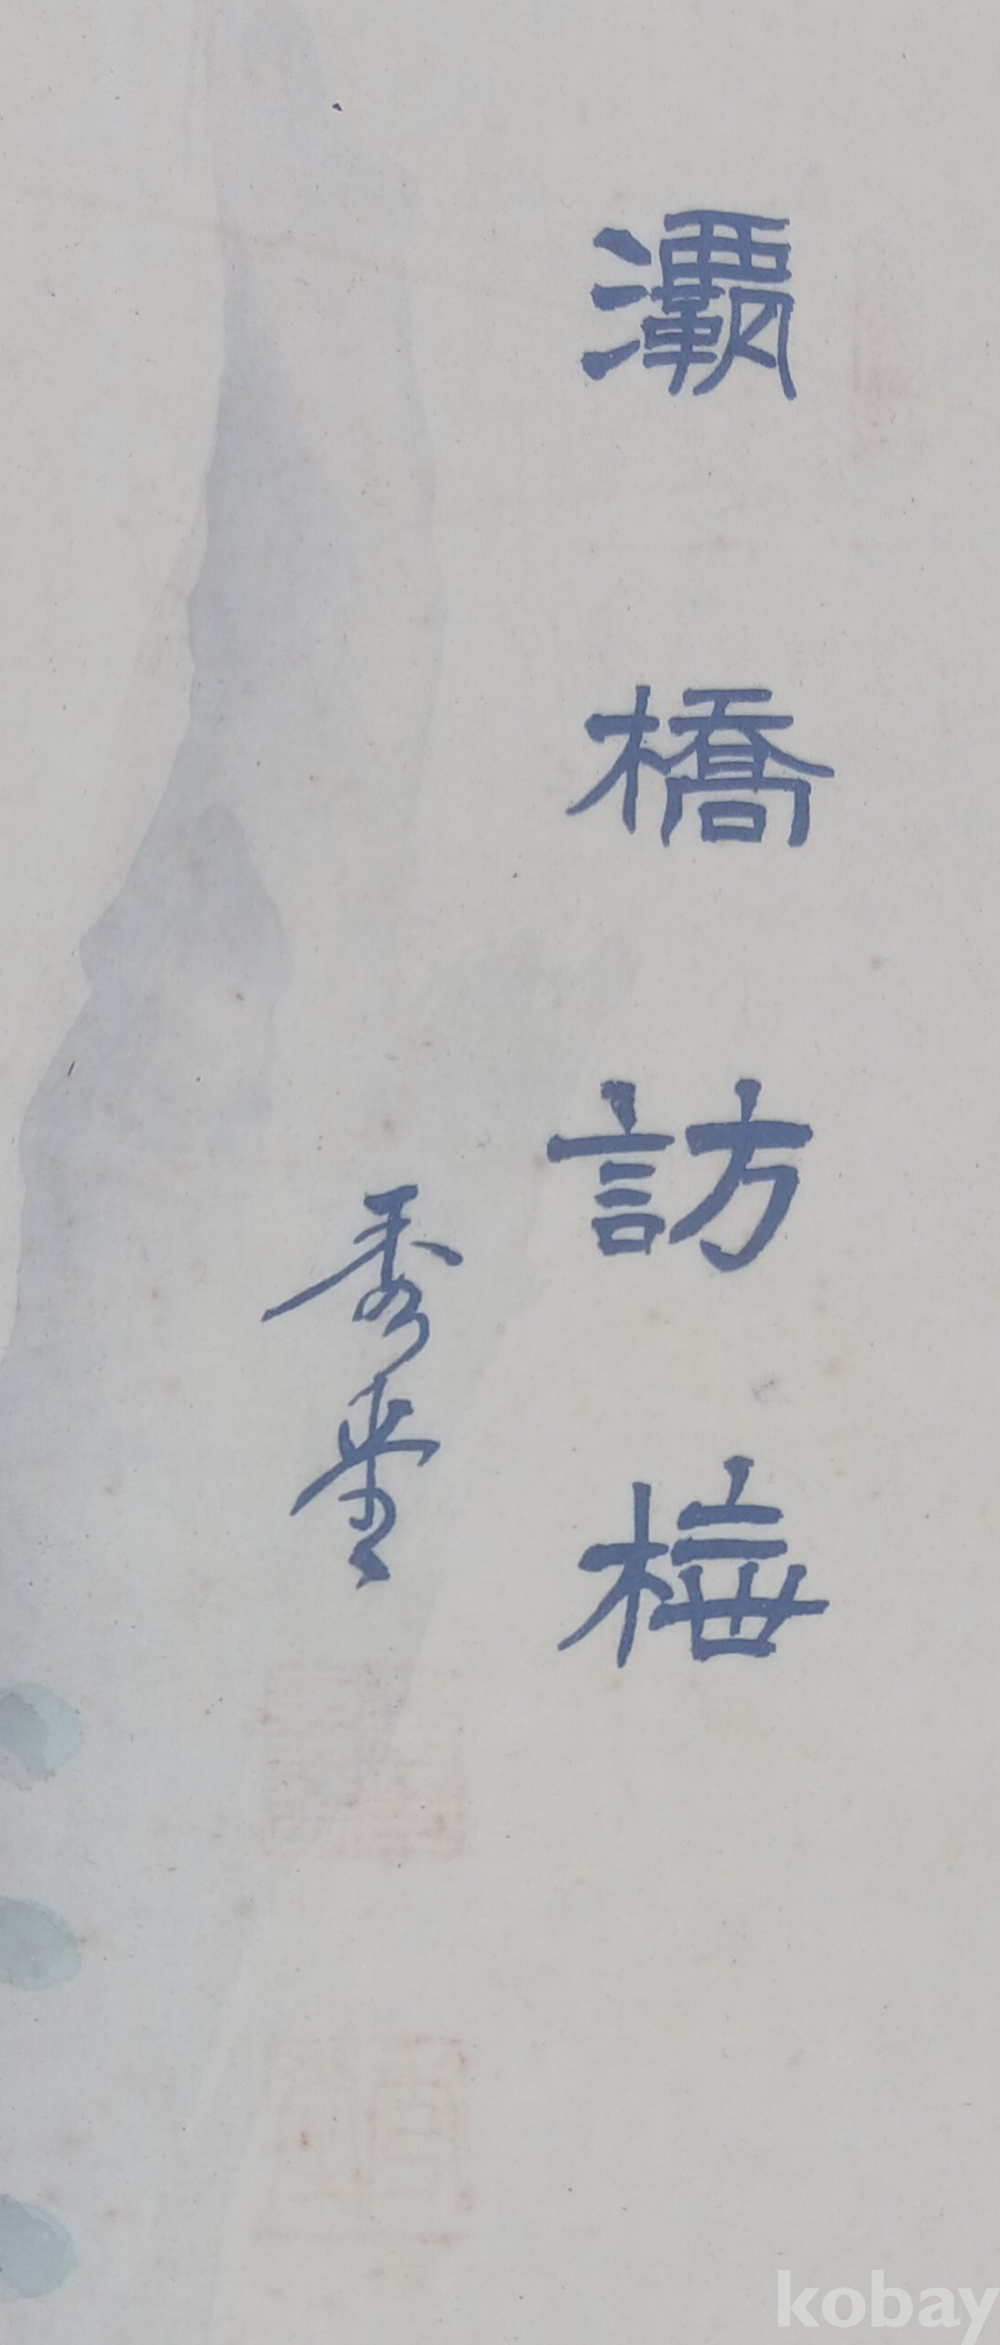 灞橋訪梅
秀堂
kobay